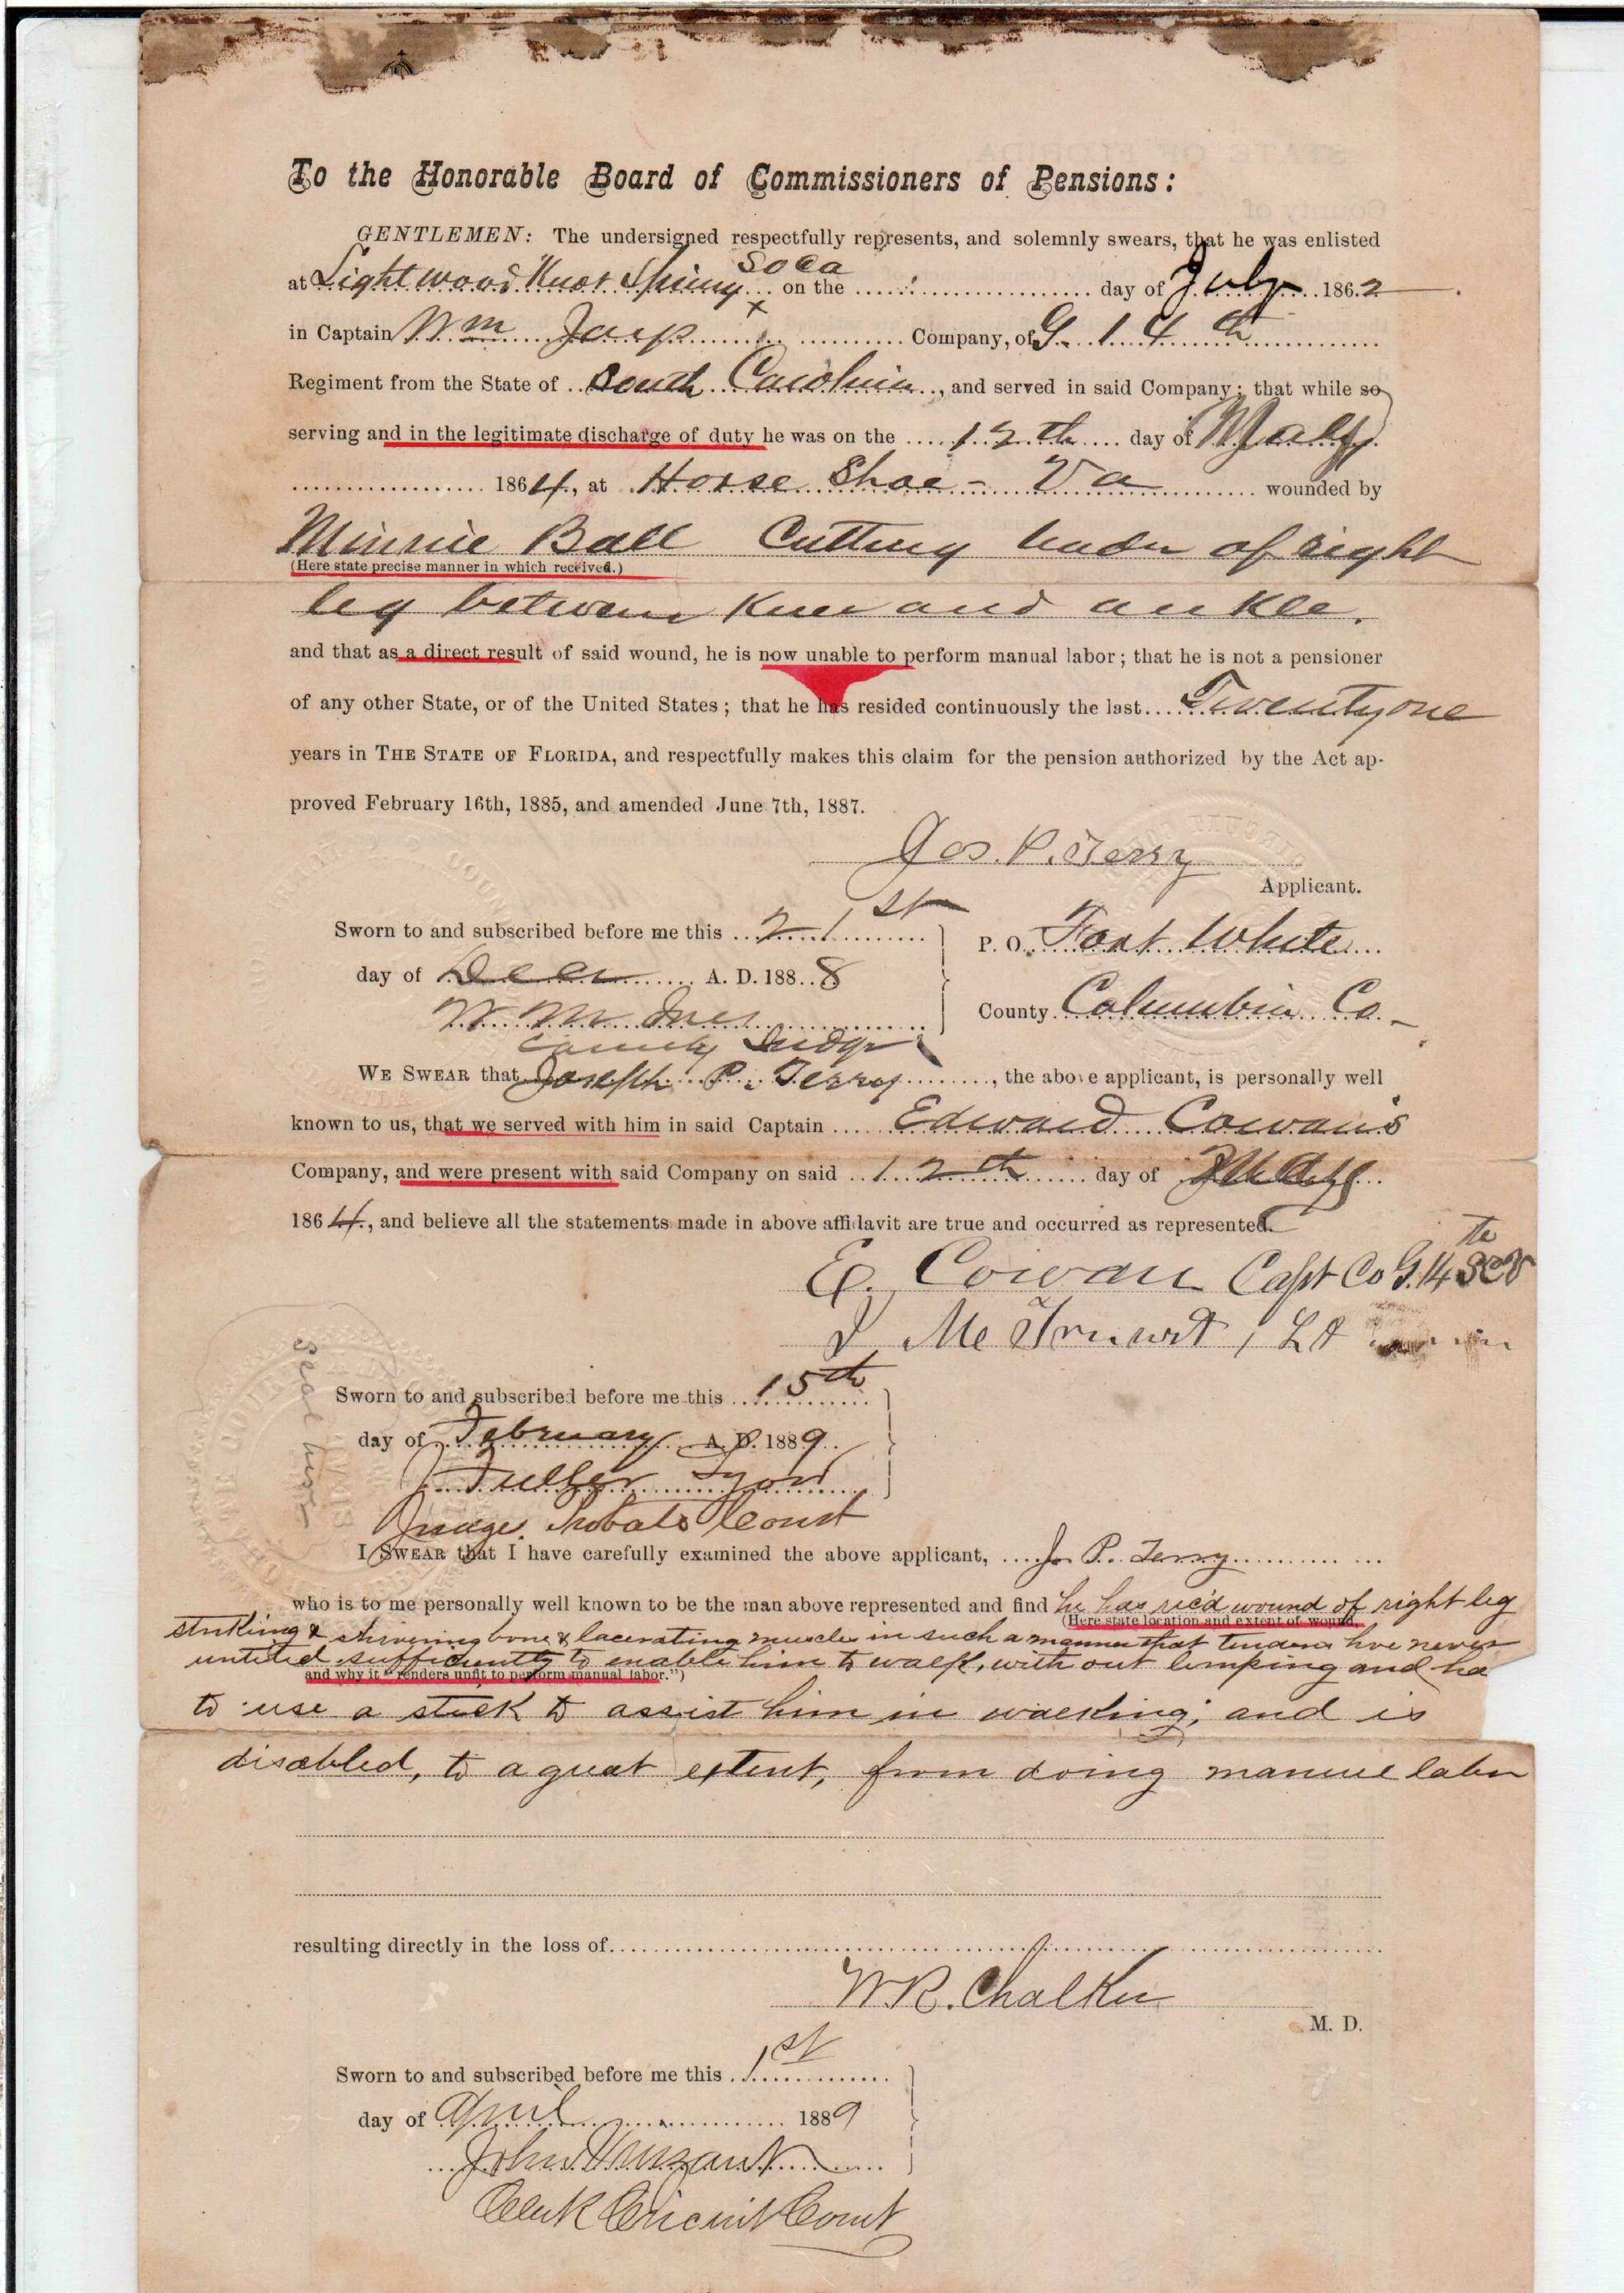 To the Honorable Board of Commissioners of Pensions:
GENTLEMEN: The undersigned respectfully represents, and solemnly swears, that he was enlisted
So Ca
at Lightwood Knot Spring on the day of July 1862
in Captain Wm Company, of G. 14th
Regiment from the State of South Carolina, and served in said Company; that while so
serving and in the legitimate discharge of duty he was on the 12th day of May
1864, at Horse Shoe - Va wounded by
Minnie Ball Cutting leader of right
(Here state precise manner in which received.)
leg between Knee and ankle.
and that as a direct result of said wound, he is now unable to perform manual labor; that he is not a pensioner
of any other State, or of the United States; that he has resided continuously the last Twenty one
years in THE STATE OF FLORIDA, and respectfully makes this claim for the pension authorized by the Act ap-
proved February 16th, 1885, and amended June 7th, 1887.
Jos. P. Terry
Applicant.
Sworn to and subscribed before me this 21st
P. O. Fort White
day of Decr A. D. 1888
W. M. Ives
County Columbia Co.
County Judge
WE SWEAR that Joseph P. Terry, the above applicant, is personally well
known to us, that we served with him in said Captain Edward Cowan's
Company, and were present with said Company on said 12th day of May
1864, and believe all the statements made in above affidavit are true and occurred as represented.
E. Cowan Capt Co G. 14th SCV
Lt
Sworn to and subscribed before me this 15th
day of February A. D. 1889
J Fuller Lyon
Judge Probate Court
I SWEAR that I have carefully examined the above applicant, J. P. Terry
who is to me personally well known to be the man above represented and find he has rec'd wound of right leg
(Here state location and extent of wound,
striking & shivering bone & lacerating muscles in such a manner that tendons hve never
united sufficiently to enable him to walk, with out limping and ha
and why it "renders unfit to perform manual labor.")
to use a stick to assist him in walking; and is
disabled, to a great extent, from doing manuel labor
resulting directly in the loss of
W. R. Chalker
M. D.
Sworn to and subscribed before me this 1st
day of April 1889
John Vinzant
Clerk Circuit Court